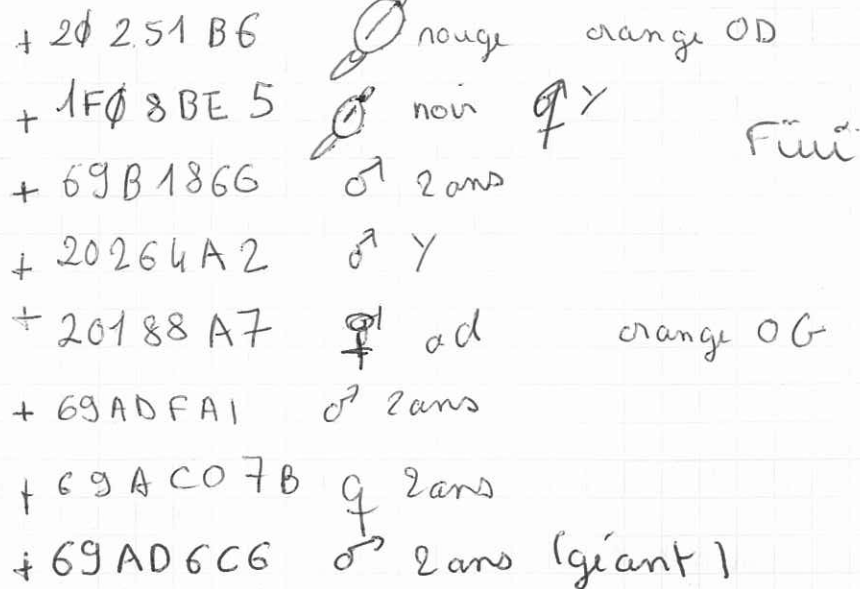 + 2Ø 2.51 B6 rouge orange OD
+ 1FØ 8BE 5 noir ♀ Y
Füüü
+ 69B1866 ♂ 2 ans
+ 20264A2 ♂ Y
+ 20188 A7 ♀ ad orange OG
+ 69ADFA1 ♂ 2ans
+ 69ACO7B ♀ 2ans
+ 69AD6C6 ♂ 2 ans (géant)